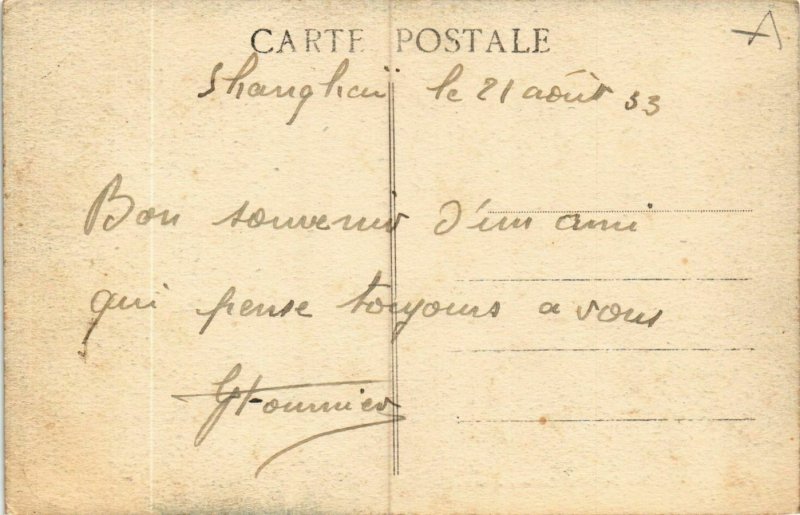 CARTE POSTALE
A
Shanghaï le 21 août 33
Bon souvenir d'un ami
qui pense toujours a vous
GFournier